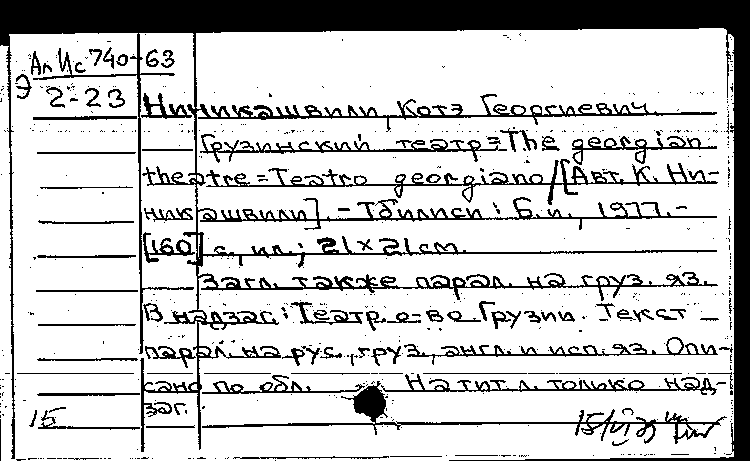 Ал Ис 740-63
Э 2-23
Ниникашвили, Котэ Георгиевич.
Грузинский театр=The georgian
theatre=Teatro georgiano/[Авт. К. Ни-
никашвили]. - Тбилиси: Б. и., 1977.-
[160] с., ил.; 21×21 см.
Загл. также парал. на груз. яз.
В надзаг: Театр. о-во Грузии. Текст
парал. на рус., груз., англ. и исп. яз. Опи-
сано по обл. На тит. л. только над-
заг.
15